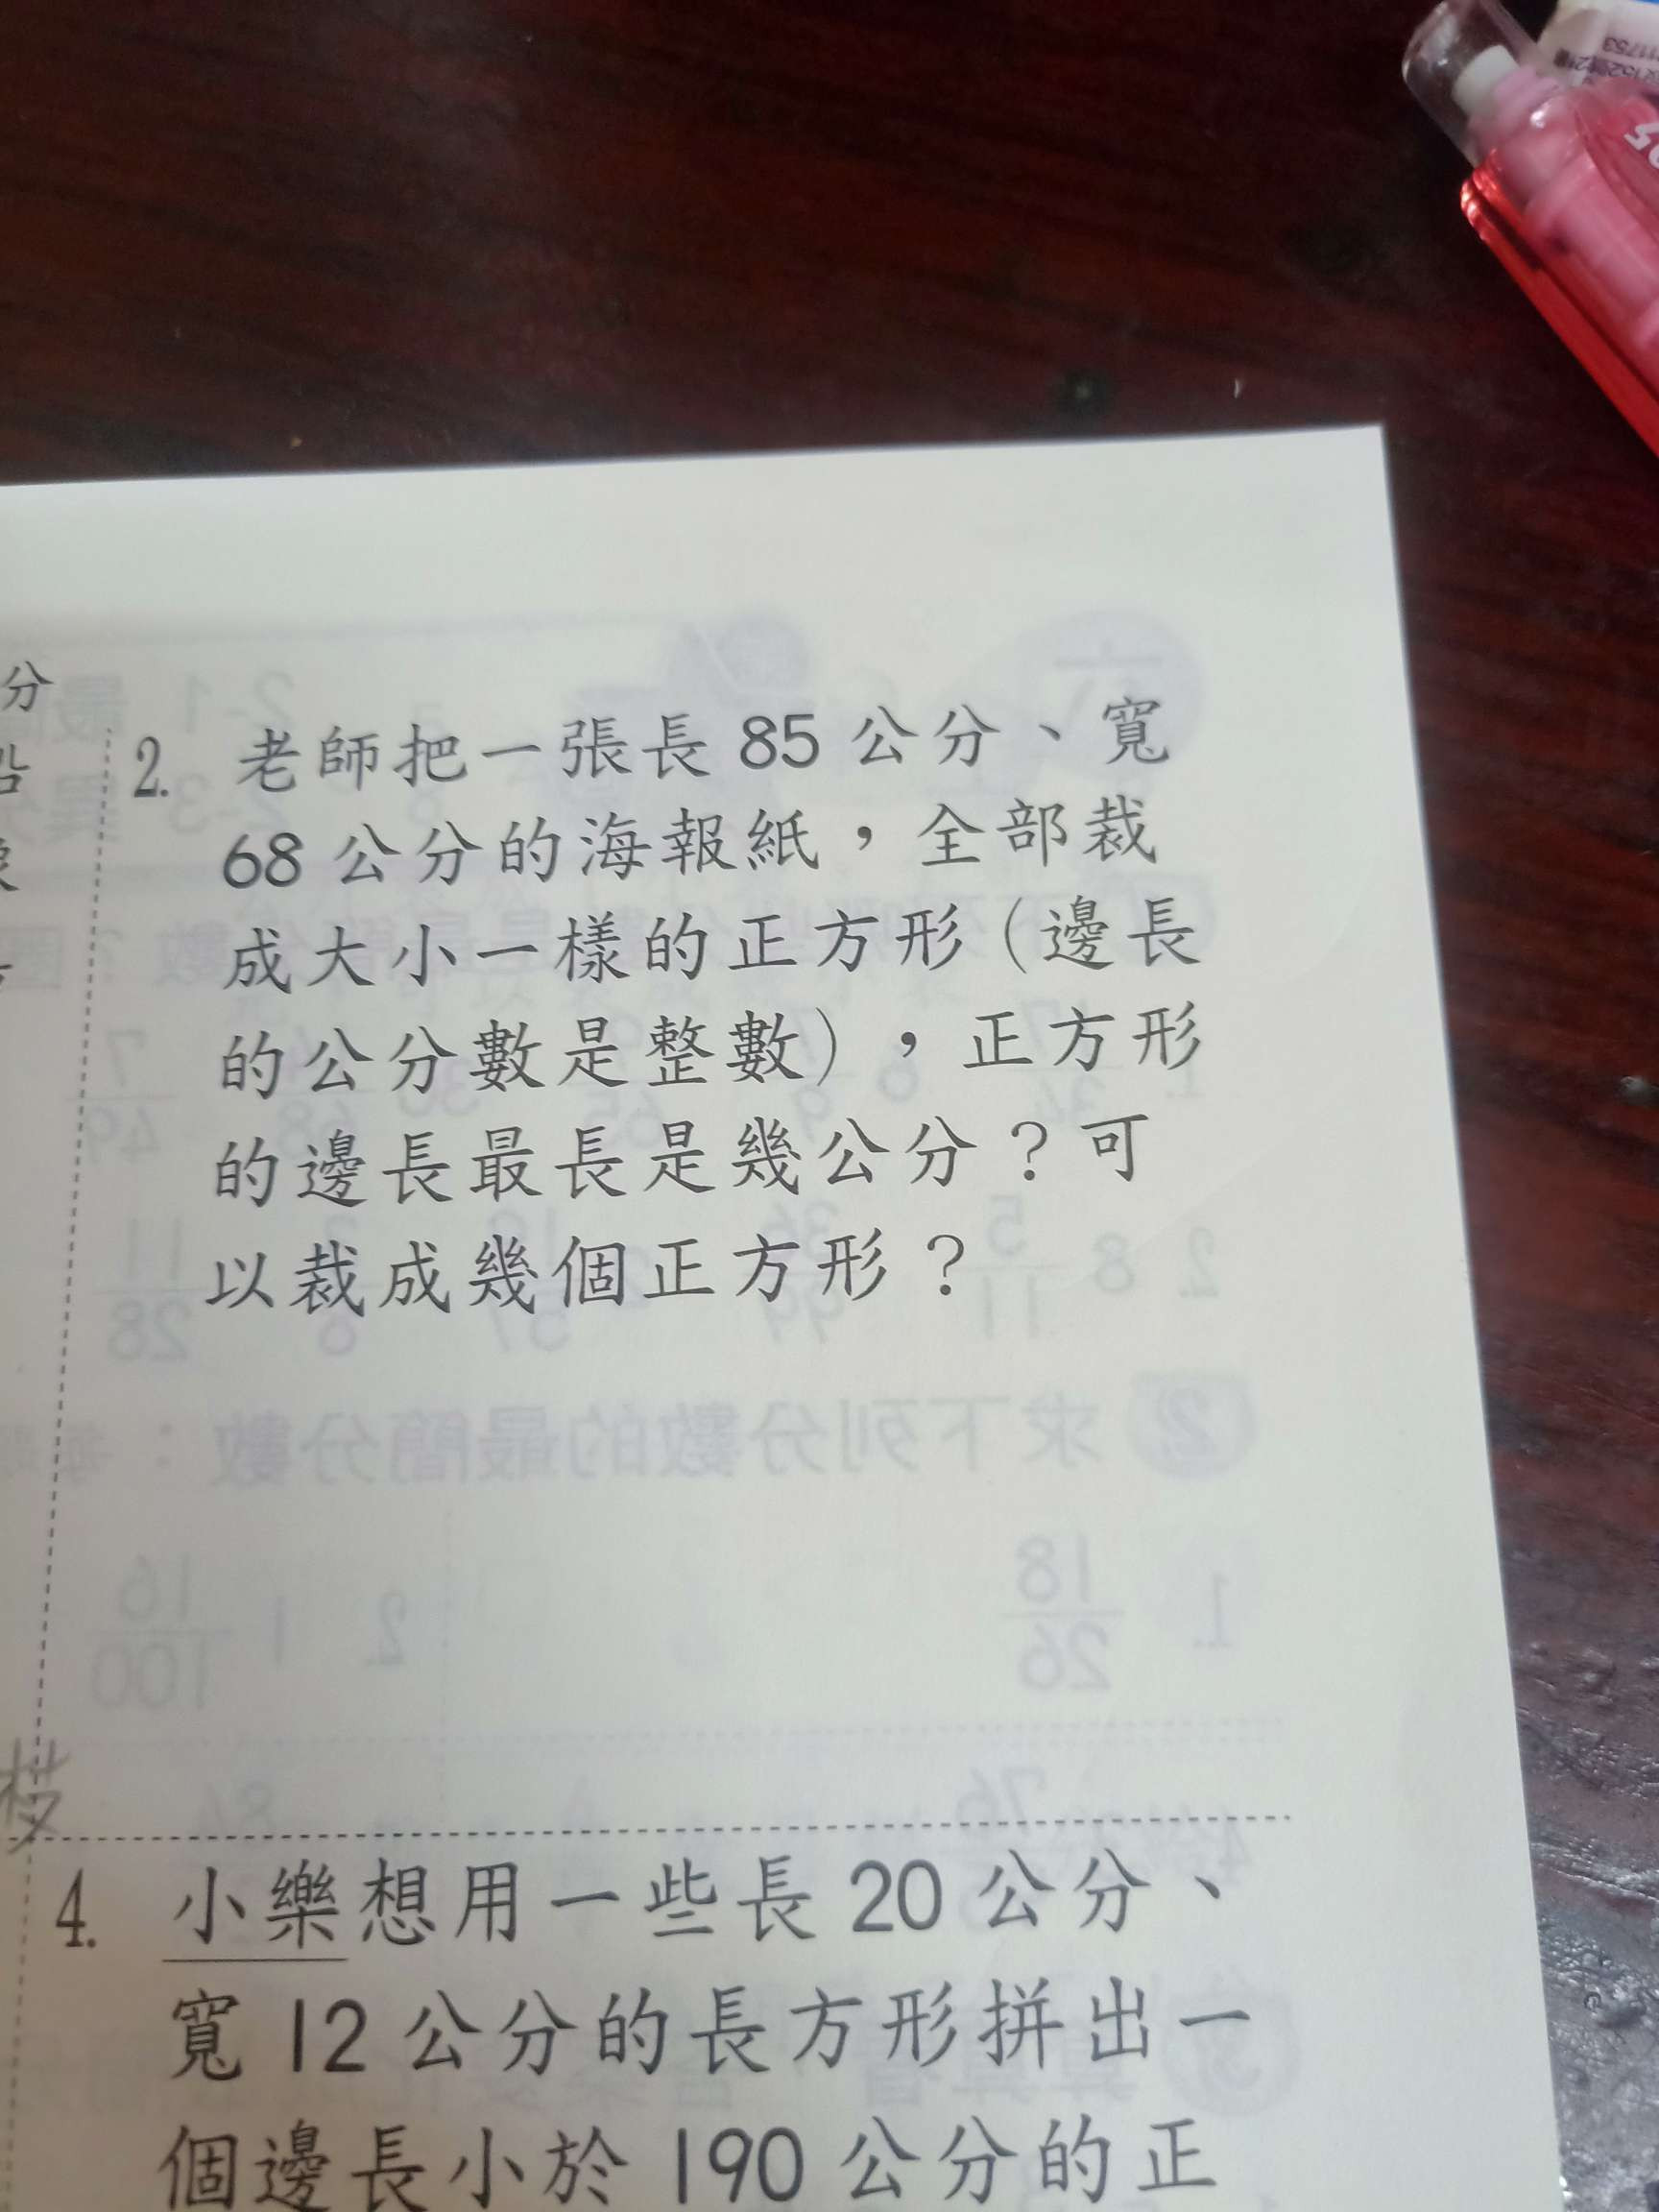 分
2. 老師把一張長 85 公分、寬
68 公分的海報紙，全部裁
成大小一樣的正方形（邊長
的公分數是整數），正方形
的邊長最長是幾公分？可
以裁成幾個正方形？
4. 小樂想用一些長 20 公分、
寬 12 公分的長方形拼出一
個邊長小於 190 公分的正